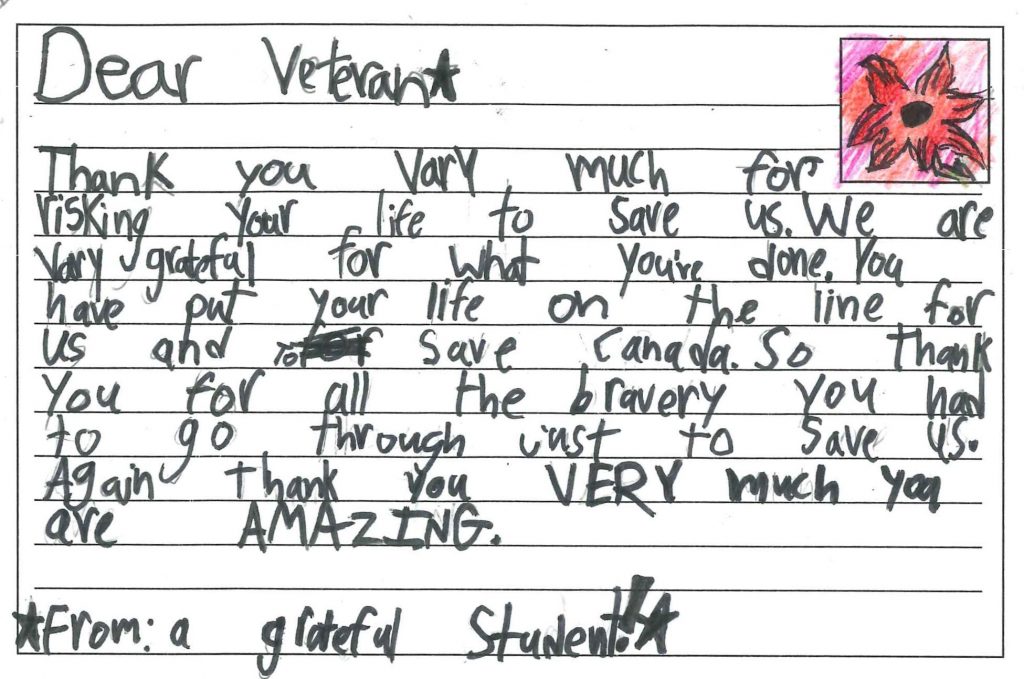 Dear Veteran★
Thank you vary much for
risking your life to save us. We are
Vary grateful for what you're done. You
have put your life on the line for
us and to save Canada. So thank
you for all the bravery you had
to go through just to save us.
Again thank you VERY much you
are AMAZING.
★From: a grateful Student!!★